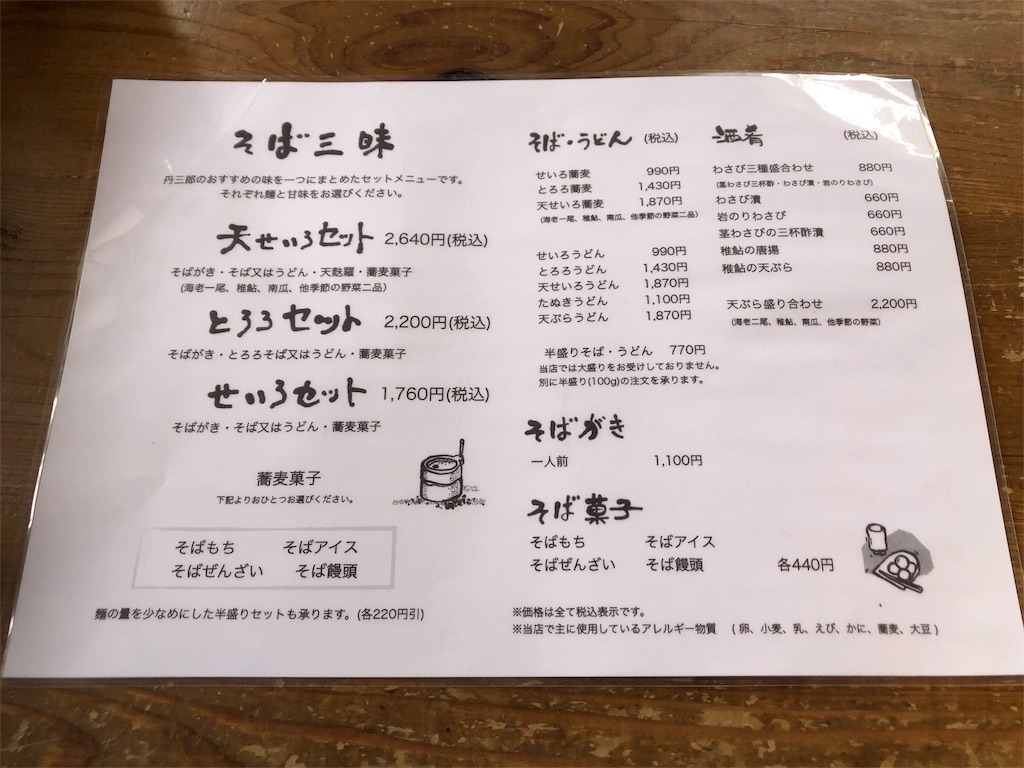 そば三昧
丹三郎のおすすめの味を一つにまとめたセットメニューです。
それぞれ麺と甘味をお選びください。
天せいろセット 2,640円(税込)
そばがき・そば又はうどん・天麩羅・蕎麦菓子
(海老一尾、稚鮎、南瓜、他季節の野菜二品)
とろろセット 2,200円(税込)
そばがき・とろろそば又はうどん・蕎麦菓子
せいろセット 1,760円(税込)
そばがき・そば又はうどん・蕎麦菓子
蕎麦菓子
下記よりおひとつお選びください。
そばもち そばアイス
そばぜんざい そば饅頭
麺の量を少なめにした半盛りセットも承ります。(各220円引)
そば・うどん (税込)
せいろ蕎麦 990円
とろろ蕎麦 1,430円
天せいろ蕎麦 1,870円
(海老一尾、稚鮎、南瓜、他季節の野菜二品)
せいろうどん 990円
とろろうどん 1,430円
天せいろうどん 1,870円
たぬきうどん 1,100円
天ぷらうどん 1,870円
半盛りそば・うどん 770円
当店では大盛りをお受けしておりません。
別に半盛り(100g)の注文を承ります。
そばがき
一人前 1,100円
そば菓子
そばもち そばアイス
そばぜんざい そば饅頭 各440円
※価格は全て税込表示です。
※当店で主に使用しているアレルギー物質 (卵、小麦、乳、えび、かに、蕎麦、大豆)
酒肴 (税込)
わさび三種盛合わせ 880円
(茎わさび三杯酢・わさび漬・岩のりわさび)
わさび漬 660円
岩のりわさび 660円
茎わさびの三杯酢漬 660円
稚鮎の唐揚 880円
稚鮎の天ぷら 880円
天ぷら盛り合わせ 2,200円
(海老二尾、稚鮎、南瓜、他季節の野菜)